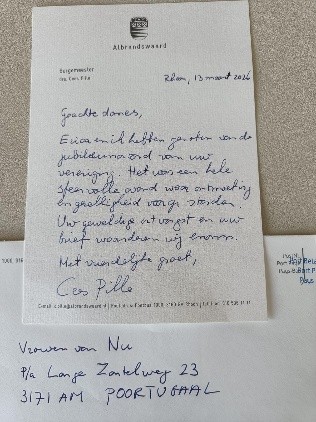 Albrandswaard
Burgemeester
drs. Cees Pille
Rhoon, 13 maart 2026
Geachte dames,
Erica en ik hebben genoten van de
jubileumavond van uw
vereniging. Het was een hele
sfeervolle avond waar ontmoeting
en gezelligheid voorop stonden.
Uw geweldige ontvangst en uw
brief waarderen wij enorm.
Met vriendelijke groet,
Cees Pille
Vrouwen van Nu
p/a Lange Zantelweg 23
3171 AM POORTUGAAL